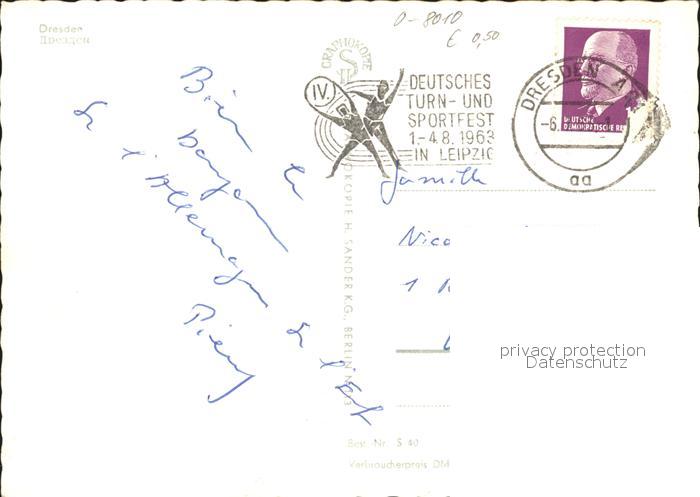 Dresden
Dresden
0-8010
€ 0,50
GRAPHOKOPIE
IV.
DEUTSCHES
TURN- UND
SPORTFEST
1.-4.8.1963
IN LEIPZIG
DRESDEN A
-6.
aa
DEUTSCHE
DEMOKRATISCHE RE
Bien
de l'Allemagne de l'Est
Pierre
Famille
Nico
1
KOPIE H. SANDER KG., BERLIN N
Best.-Nr. S 40
Verbraucherpreis DM
privacy protection
Datenschutz